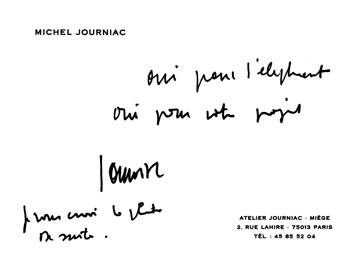 MICHEL JOURNIAC
oui pour l'éléphant
oui pour votre projet
Journiac
je vous envoie la photo
de suite.
ATELIER JOURNIAC - MIÈGE
2, RUE LAHIRE - 75013 PARIS
TÉL. : 45 85 52 04